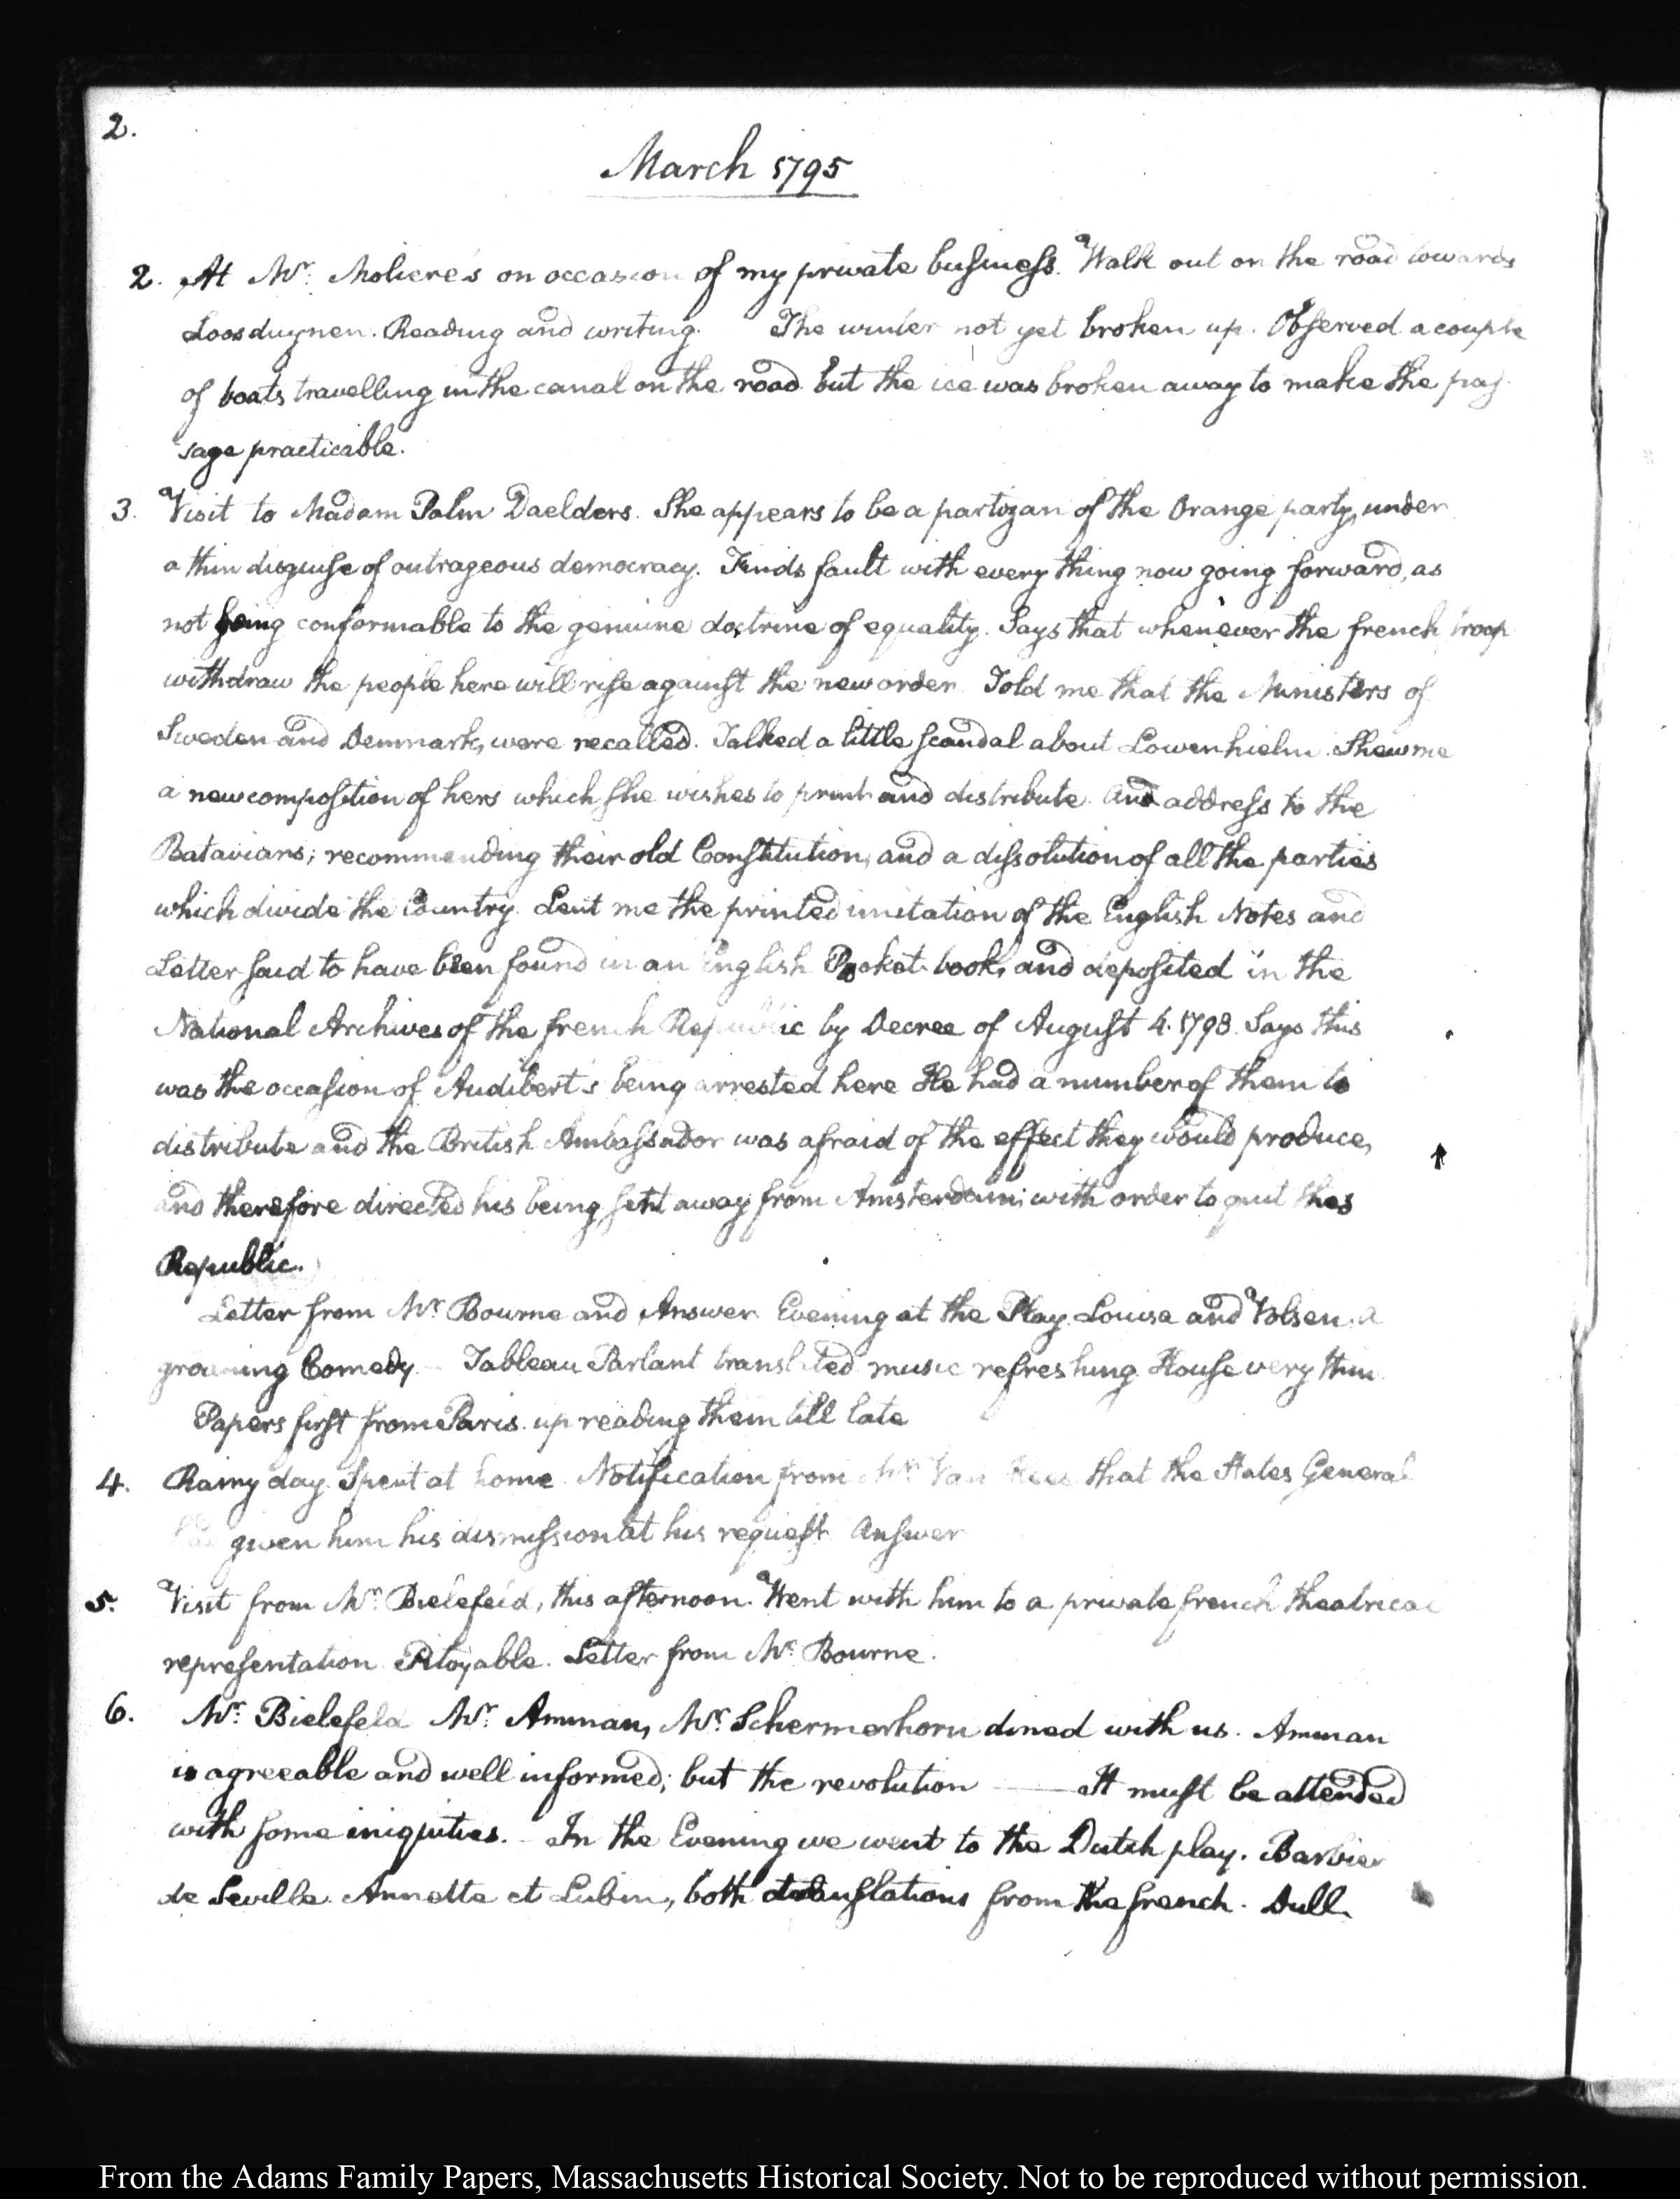 2.
March 1795
2. At Mr. Moliere's on occasion of my private business. Walk out on the road towards
Loosduynen. Reading and writing. The winter not yet broken up. Observed a couple
of boats travelling in the canal on the road but the ice was broken away to make the pas-
sage practicable.
3. Visit to Madam Palm Daelders. She appears to be a partizan of the Orange party, under
a thin disguise of outrageous democracy. Finds fault with every thing now going forward, as
not being conformable to the genuine doctrine of equality. Says that whenever the french troops
withdraw the people here will rise against the new order. Told me that the Ministers of
Sweden and Denmark, were recalled. Talked a little scandal about Lowenhielm. Shew me
a new composition of hers which she wishes to print and distribute. And address to the
Batavians; recommending their old Constitution, and a dissolution of all the parties
which divide the Country. Lent me the printed imitation of the English Notes and
Letter said to have been found in an English Pocket-book, and deposited in the
National Archives of the french Republic by Decree of August 4. 1793. Says this
was the occasion of Audibert's being arrested here He had a number of them to
distribute and the British Ambassador was afraid of the effect they would produce,
and therefore directed his being sent away from Amsterdam; with order to quit this
Republic.
Letter from Mr. Bourne and Answer. Evening at the Play. Louisa and Volsen. a
groaning Comedy — Tableau Parlant translated music refreshing. House very thin.
Papers first from Paris. up reading them till late
4. Rainy day. Spent at home. Notification from Mr. Van Hees that the States General
had given him his dismission at his request. Answer
5. Visit from Mr. Bielefeld, this afternoon. Went with him to a private french theatrical
representation. Pitoyable. Letter from Mr. Bourne.
6. Mr. Bielefeld Mr. Amman, Mr. Schermerhorn dined with us. Amman
is agreeable and well informed; but the revolution —— It must be attended
with some iniquities. — In the Evening we went to the Dutch play. Barbier
de Seville. Annette et Lubin, both translations from the french. Dull.
From the Adams Family Papers, Massachusetts Historical Society. Not to be reproduced without permission.